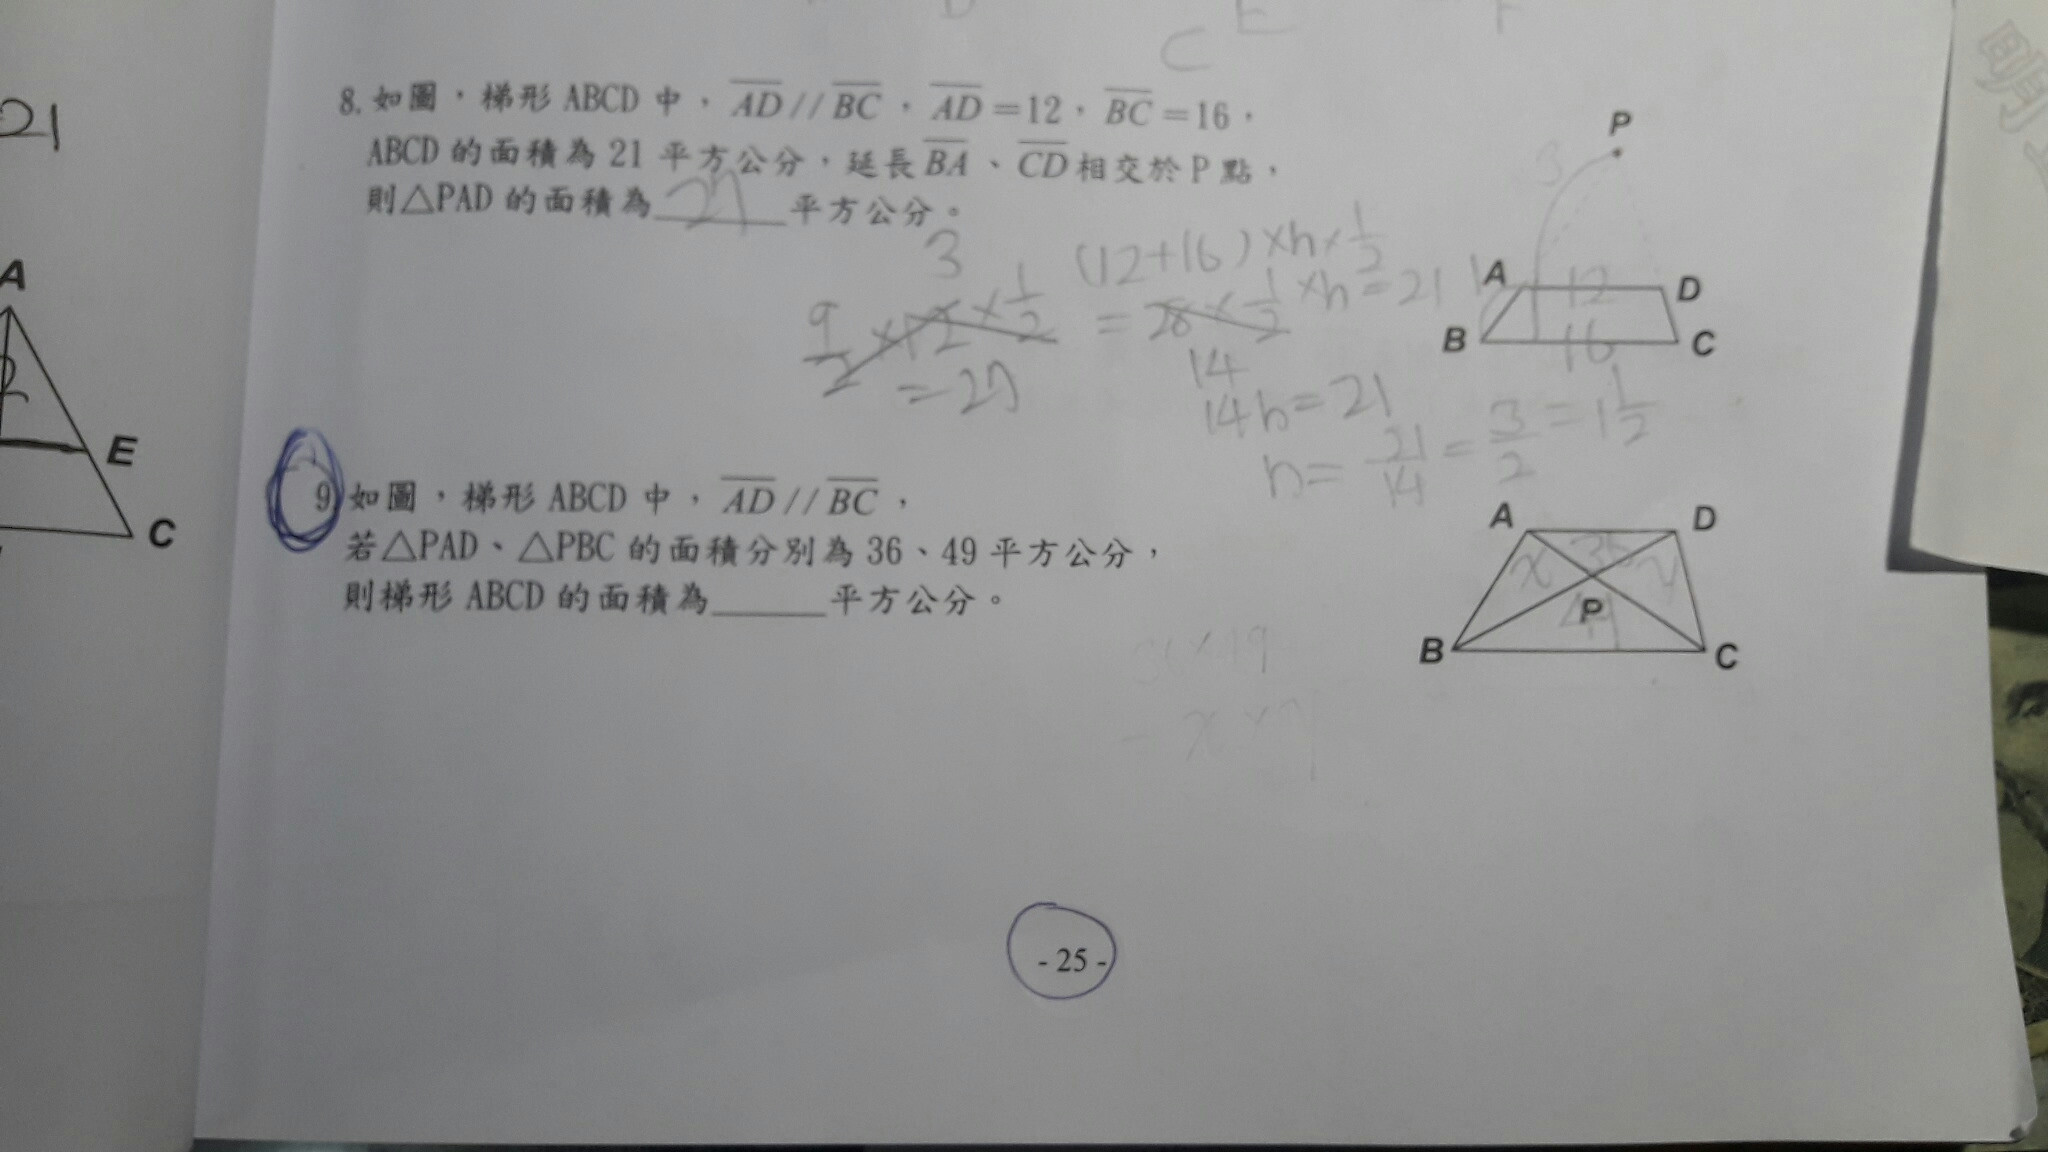 C
E
21
8. 如圖，梯形 ABCD 中，AD // BC，AD＝12，BC＝16，
ABCD 的面積為 21 平方公分，延長 BA、CD 相交於 P 點，
則△PAD 的面積為 27 平方公分。
P
3
A 12 D
B 16 C
(12+16)×h×1/2
= 28×1/2 ×h=21
14
14h=21
h= 21/14 = 3/2 = 1 1/2
3
9/2 ×12×1/2
=27
A
E
C
9. 如圖，梯形 ABCD 中，AD // BC，
若△PAD、△PBC 的面積分別為 36、49 平方公分，
則梯形 ABCD 的面積為______平方公分。
A D
x y
P
B C
- 25 -
明